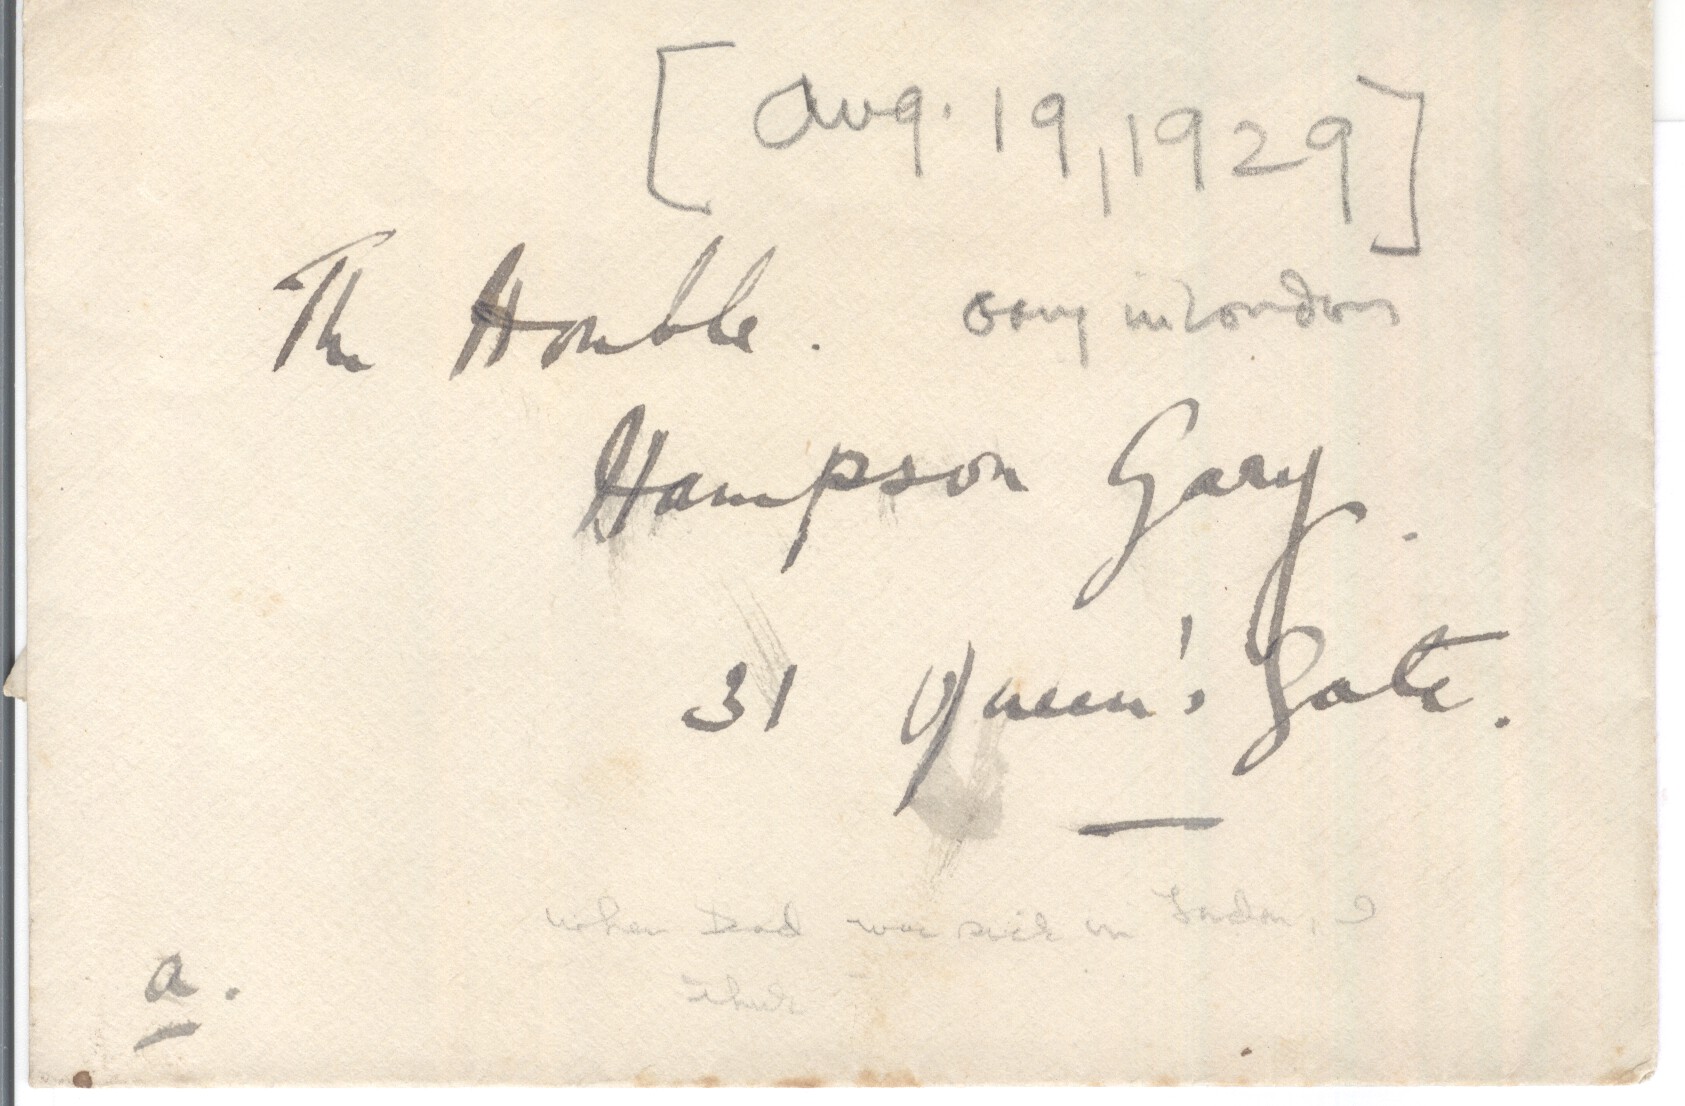 [Aug. 19, 1929]
The Honble. Gary in London
Hampson Gary.
31 Queen's Gate.
when Dad was sick in London, I
think
a.